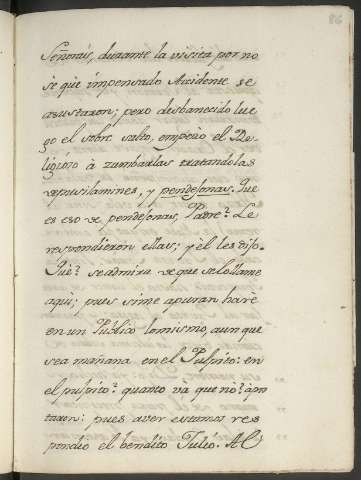 86
Señoras, durante la vissita por no
se que impensado Accidente se
asustaron; pero desbanecido lue
go el sobre salto, empezo el Re-
ligiozo à zumbarlas tratandolas
de pusilamines, y pendejonas. Que
es eso de pendejonas, Padre? Le
respondieron ellas; y èl les dijo.
Què? se admira de que se lo llame
aqui; pues si me apuran harè
en un Público lo mismo, aun que
sea mañana en el Pulpito: en
el pulpito? quanto và que no? apos
taron: pues a ver estamos res
pondio el bendito Tulio. Al